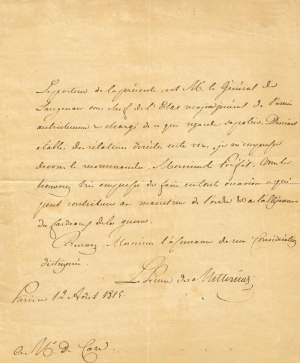 Le porteur de la présente est M. le Général de
Langenau sous chef de l'Etat major général de l'armée
autrichienne chargé de ce qui regarde sa police. Devant
établir des relations directes avec vous, je m'empresse
de vous le recommander Monsieur le Préfet,
très empressé de faire en toute occasion ce qui
peut contribuer au maintien de l'ordre
de la guerre.
Recevez Monsieur l'assurance de ma Considération
distinguée.
Le Prince de Metternich
Paris ce 12 Août 1815
à Mr. de